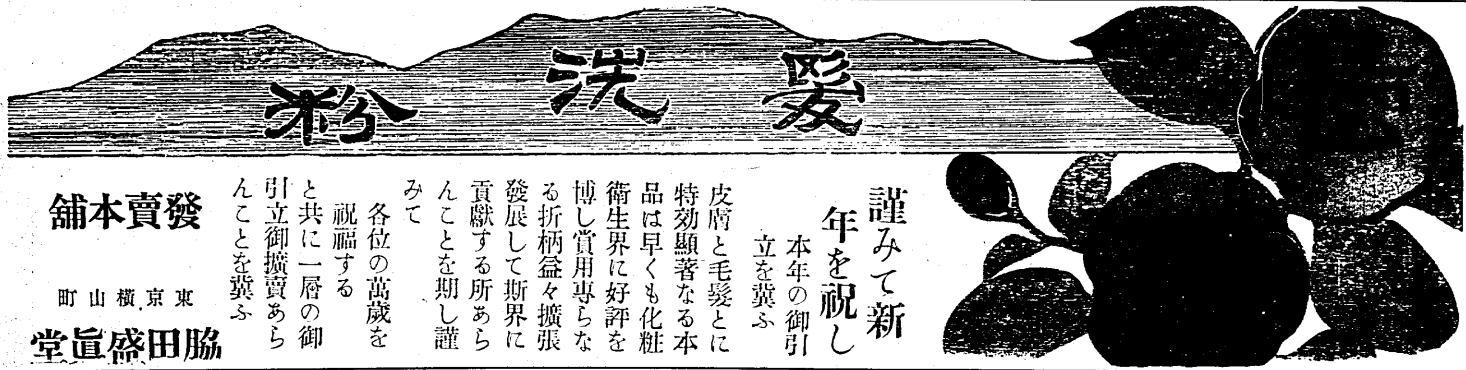 髮洗粉
謹みて新
年を祝し
本年の御引
立を冀ふ
皮膚と毛髮とに
特効顯著なる本
品は早くも化粧
衛生界に好評を
博し賞用專らな
る折柄益々擴張
發展して斯界に
貢獻する所あら
んことを期し謹
みて
各位の萬歲を
祝福する
と共に一層の御
引立御擴賣あら
んことを冀ふ
發賣本舖
東京橫山町
脇田盛眞堂